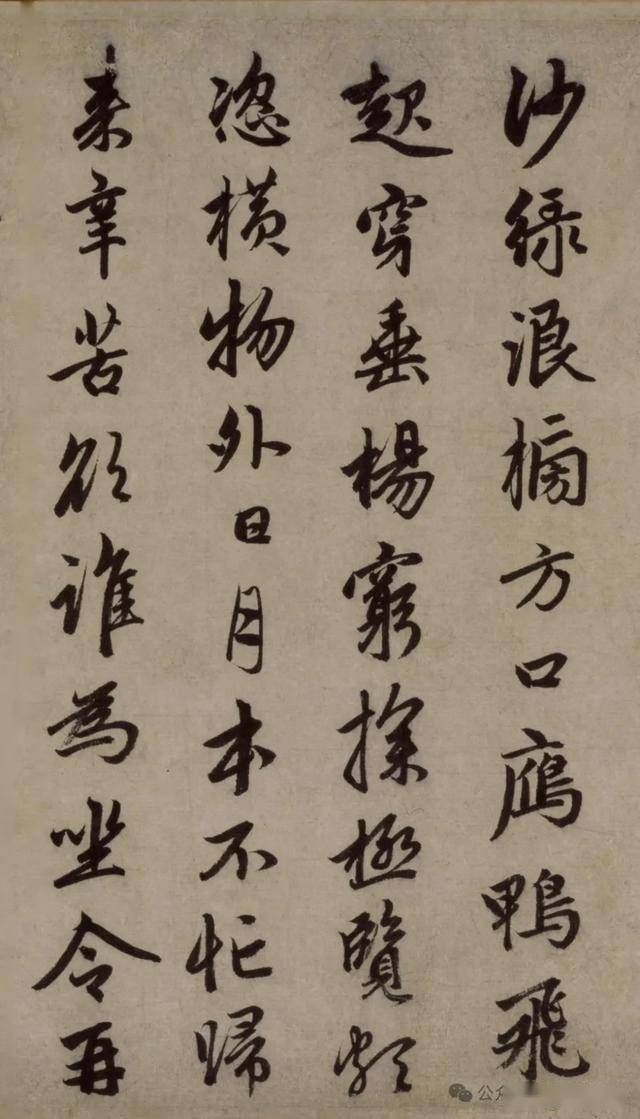 沙綠浪榜方口鴈鴨飛
起穿垂楊窮探極覽頗
恣橫物外日月本不忙歸
来辛苦欲誰為坐令再
公